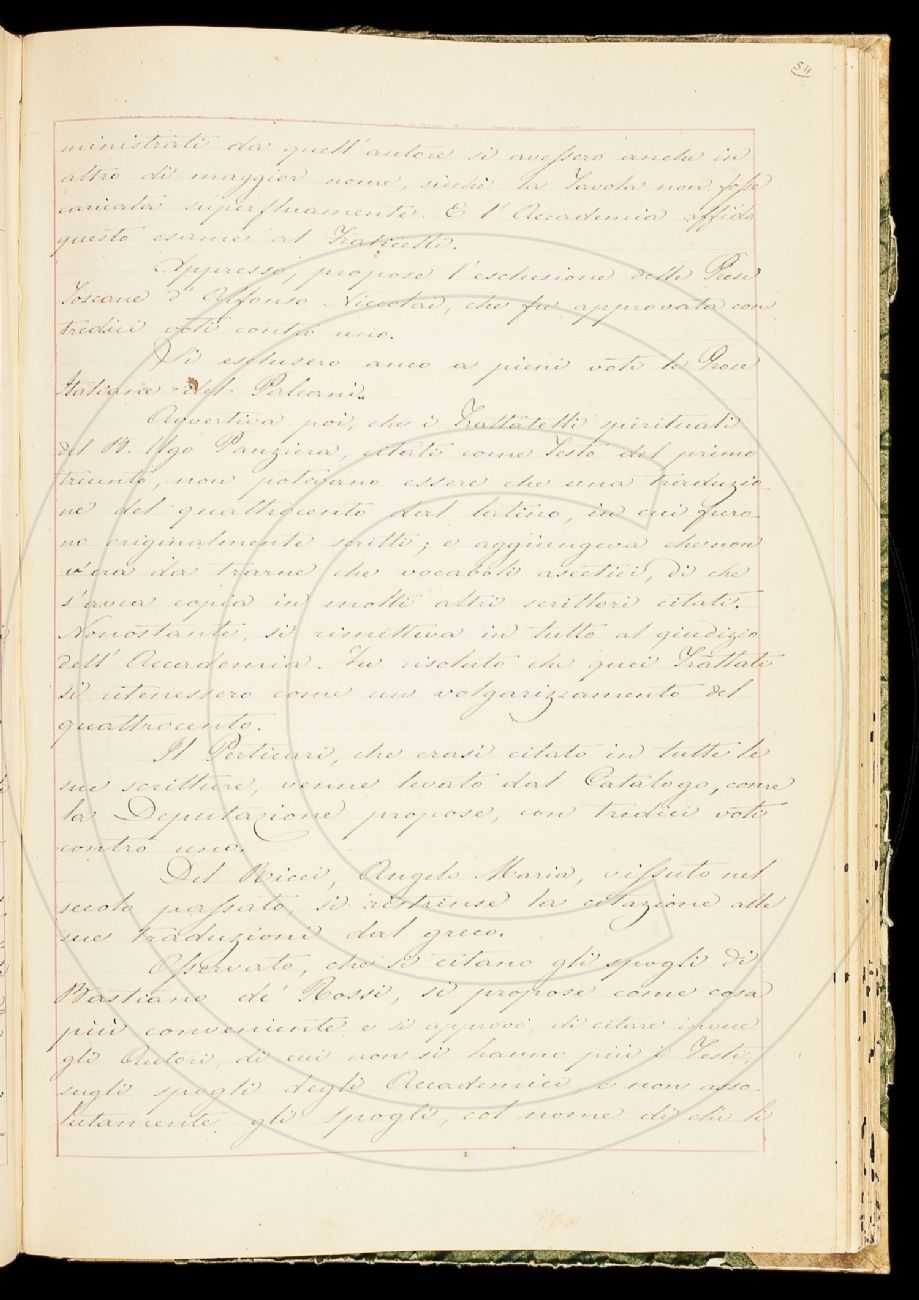 54
ministrati da quell'autore si avessero anche in
altro di maggior nome, sicchè la Tavola non fosse
caricata superfluamente. E l'Accademia affidò
questo esame al Fraticelli.
Appresso, propose l'esclusione delle Prose
Toscane d'Alfonso Niccolai, che fu approvata con
tredici voti contro uno.
Si esclusero anco a pieni voti le Prose
Italiane del
Avvertiva poi, che i Trattatelli spirituali
del B. Ugo Panziera, citati come Testo del primo
trecento, non potevano essere che una traduzio-
ne del quattrocento dal latino, in cui furo-
no originalmente scritti; e aggiungeva che non
v'era da trarne che vocaboli ascetici, di che
s'avea copia in molti altri scrittori citati.
Nonostante, si rimetteva in tutto al giudizio
dell'Accademia. Fu risoluto che quei Trattati
si ritenessero come un volgarizzamento del
quattrocento.
Il Perticari, che erasi citato in tutte le
sue scritture, venne levato dal Catalogo, come
la Deputazione propose, con tredici voti
contro uno.
Del Ricci, Angelo Maria, vissuto nel
secolo passato, si ristrinse la citazione alle
sue traduzioni dal greco.
Osservato, che si citano gli spogli di
Bastiano de' Rossi, si propose come cosa
più conveniente e si approvò di citare invece
gli Autori, di cui non si hanno più i Testi,
sugli spogli degli Accademici, e non asso-
lutamente gli spogli, col nome di chi li